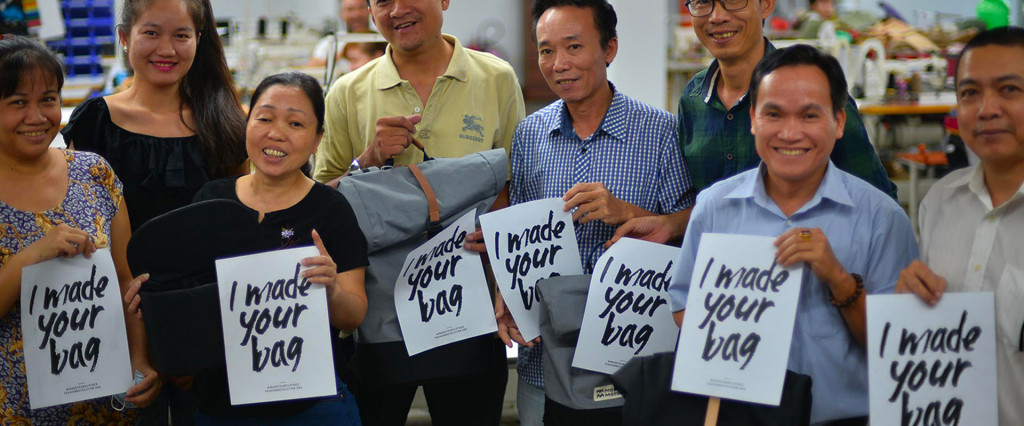 I made
your
bag
I made
your
bag
I made
your
bag
I made
your
bag
I made
your
bag
I made
your
bag
I made
your
bag